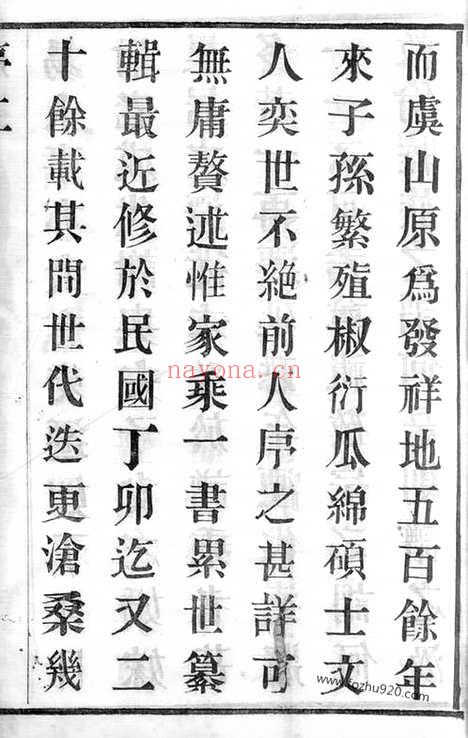 而虞山原爲發祥地五百餘年
來子孫繁殖椒衍瓜綿碩士文
人奕世不絶前人序之甚詳可
無庸贅述惟家乘一書累世纂
輯最近修於民國丁卯迄又二
十餘載其間世代迭更滄桑幾
nayona.cn
www.fozhu920.com